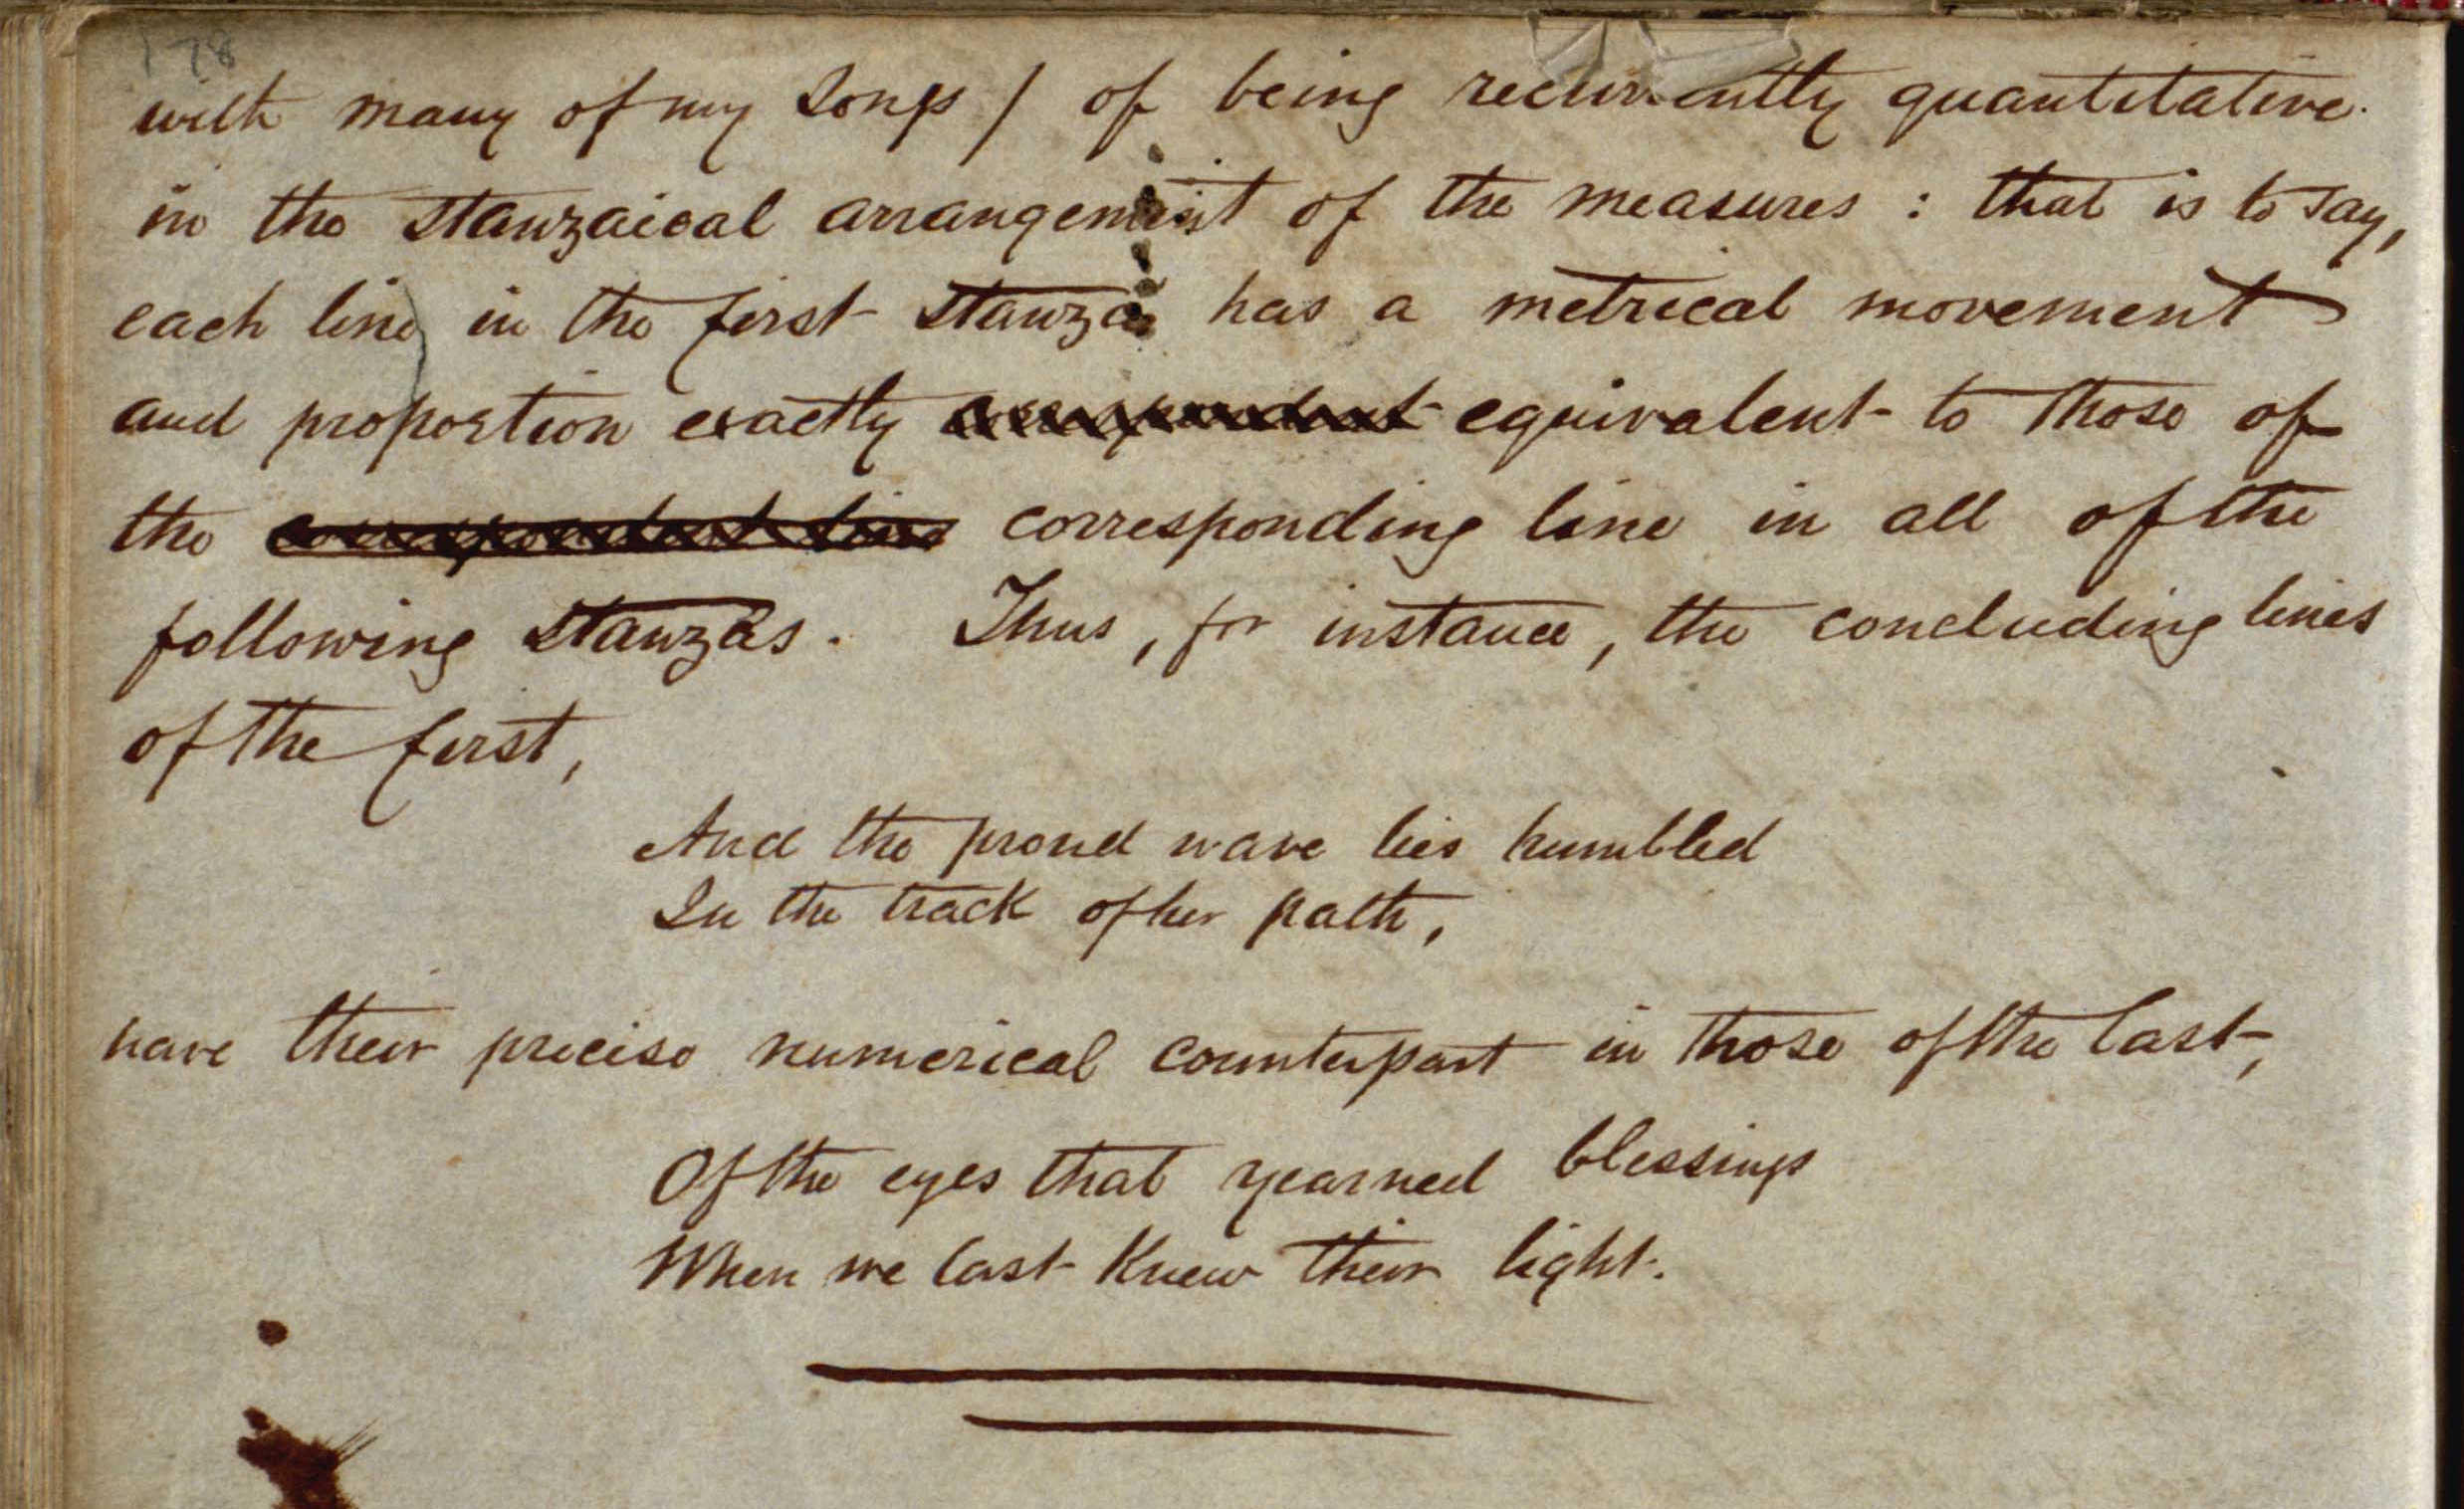 178
with many of my Songs) of being recurrently quantitative
in the stanzaical arrangement of the measures : that is to say,
each line in the first stanza has a metrical movement
and proportion exactly equivalent to those of
the correspondent line corresponding line in all of the
following stanzas. Thus, for instance, the concluding lines
of the first,
And the proud wave lies humbled
In the track of her path,
have their precise numerical counterpart in those of the last,
Of the eyes that yearned blessings
When we last knew their light.